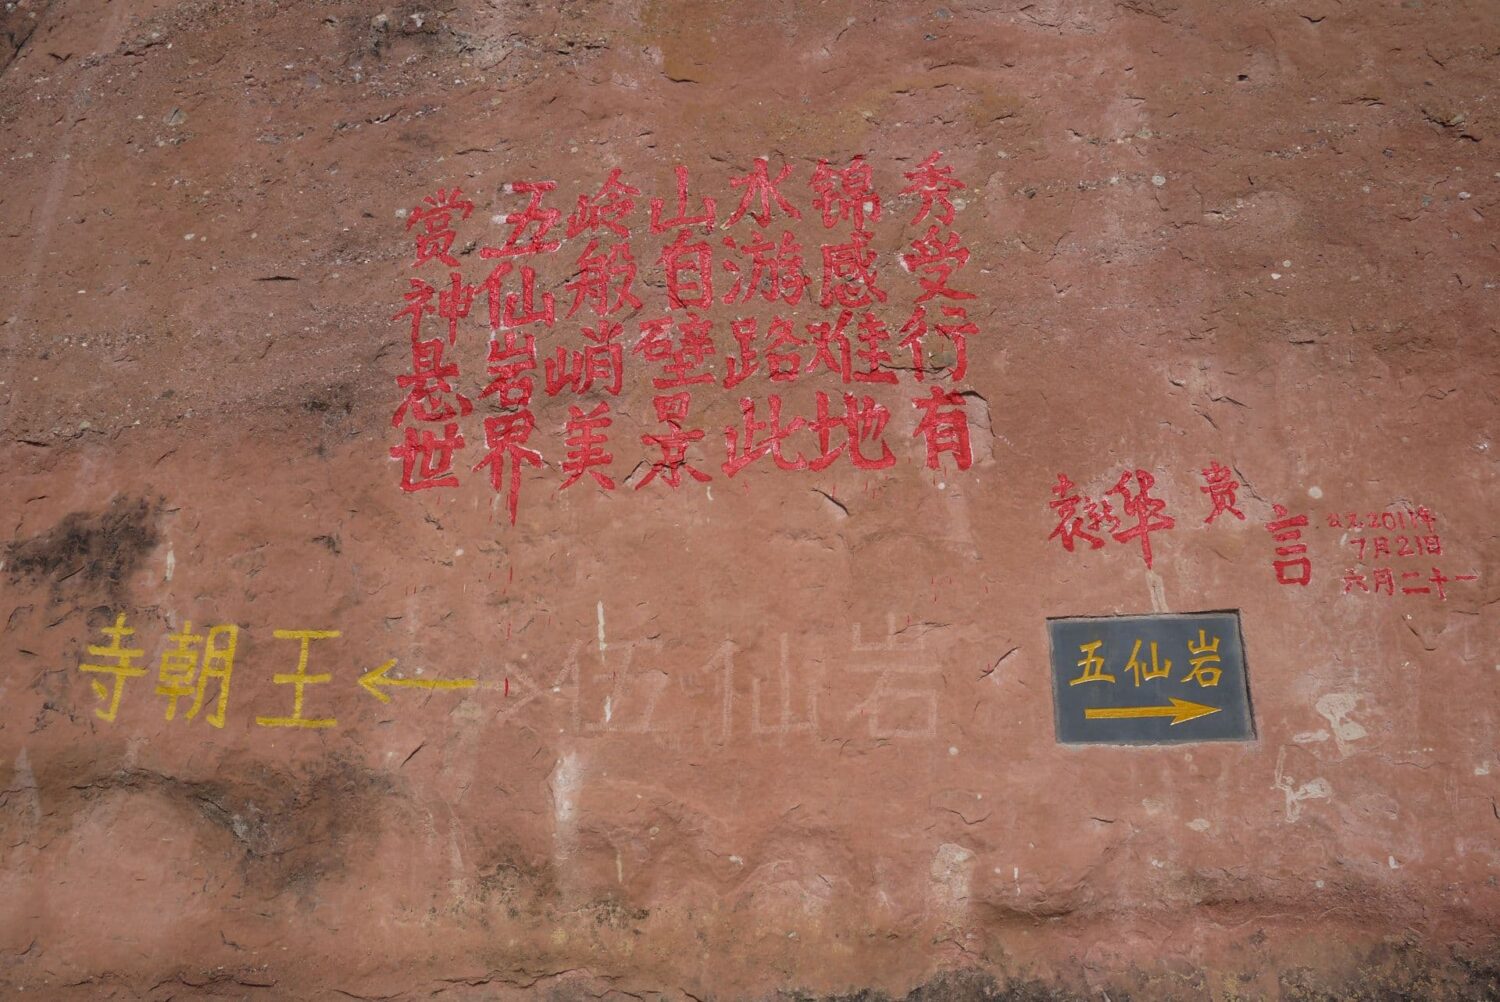 赏五岭山水锦秀
神仙般自游感受
悬岩峭壁路难行
世界美景此地有
袁 华 贵 言
2011年
7月21日
六月二十一
寺朝王 ←
伍仙岩
五仙岩
→